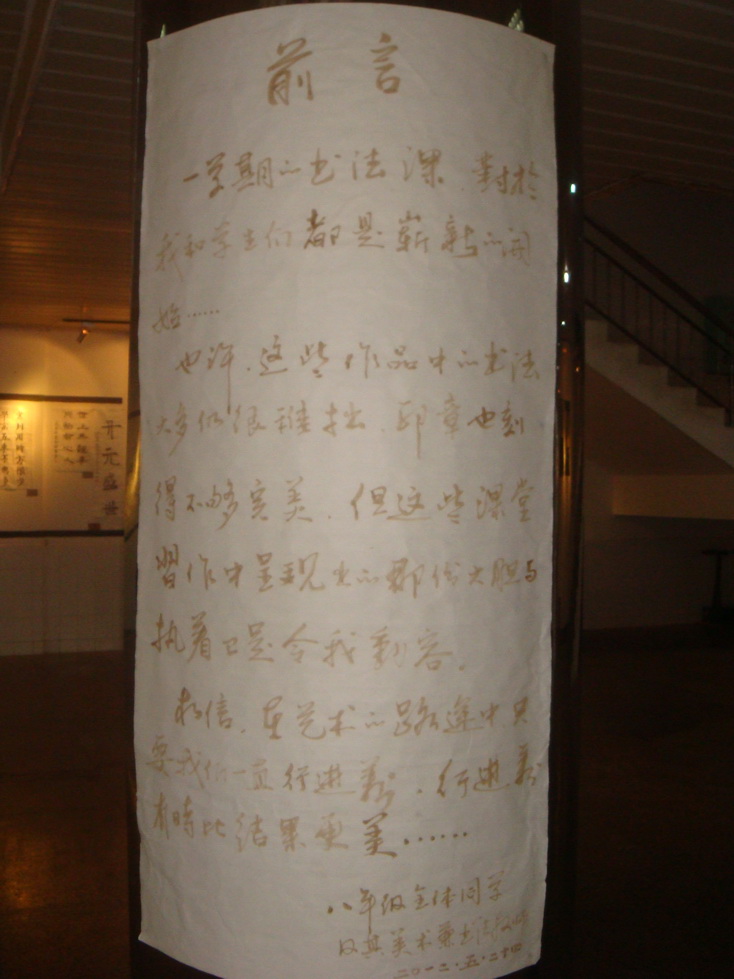 前言
一学期的书法课，對於
我和学生们都是崭新的開
始……
也许，这些作品中的书法
大多仍很稚拙，印章也刻
得不够完美，但这些课堂
習作中呈现出的那份大胆与
执着已是令我動容。
相信，在艺术的路途中只
要我们一直行進着，行進着
有時比结果更美……
八年级全体同学
及其美术兼书法
二〇一二·五·二十四
開元盛世